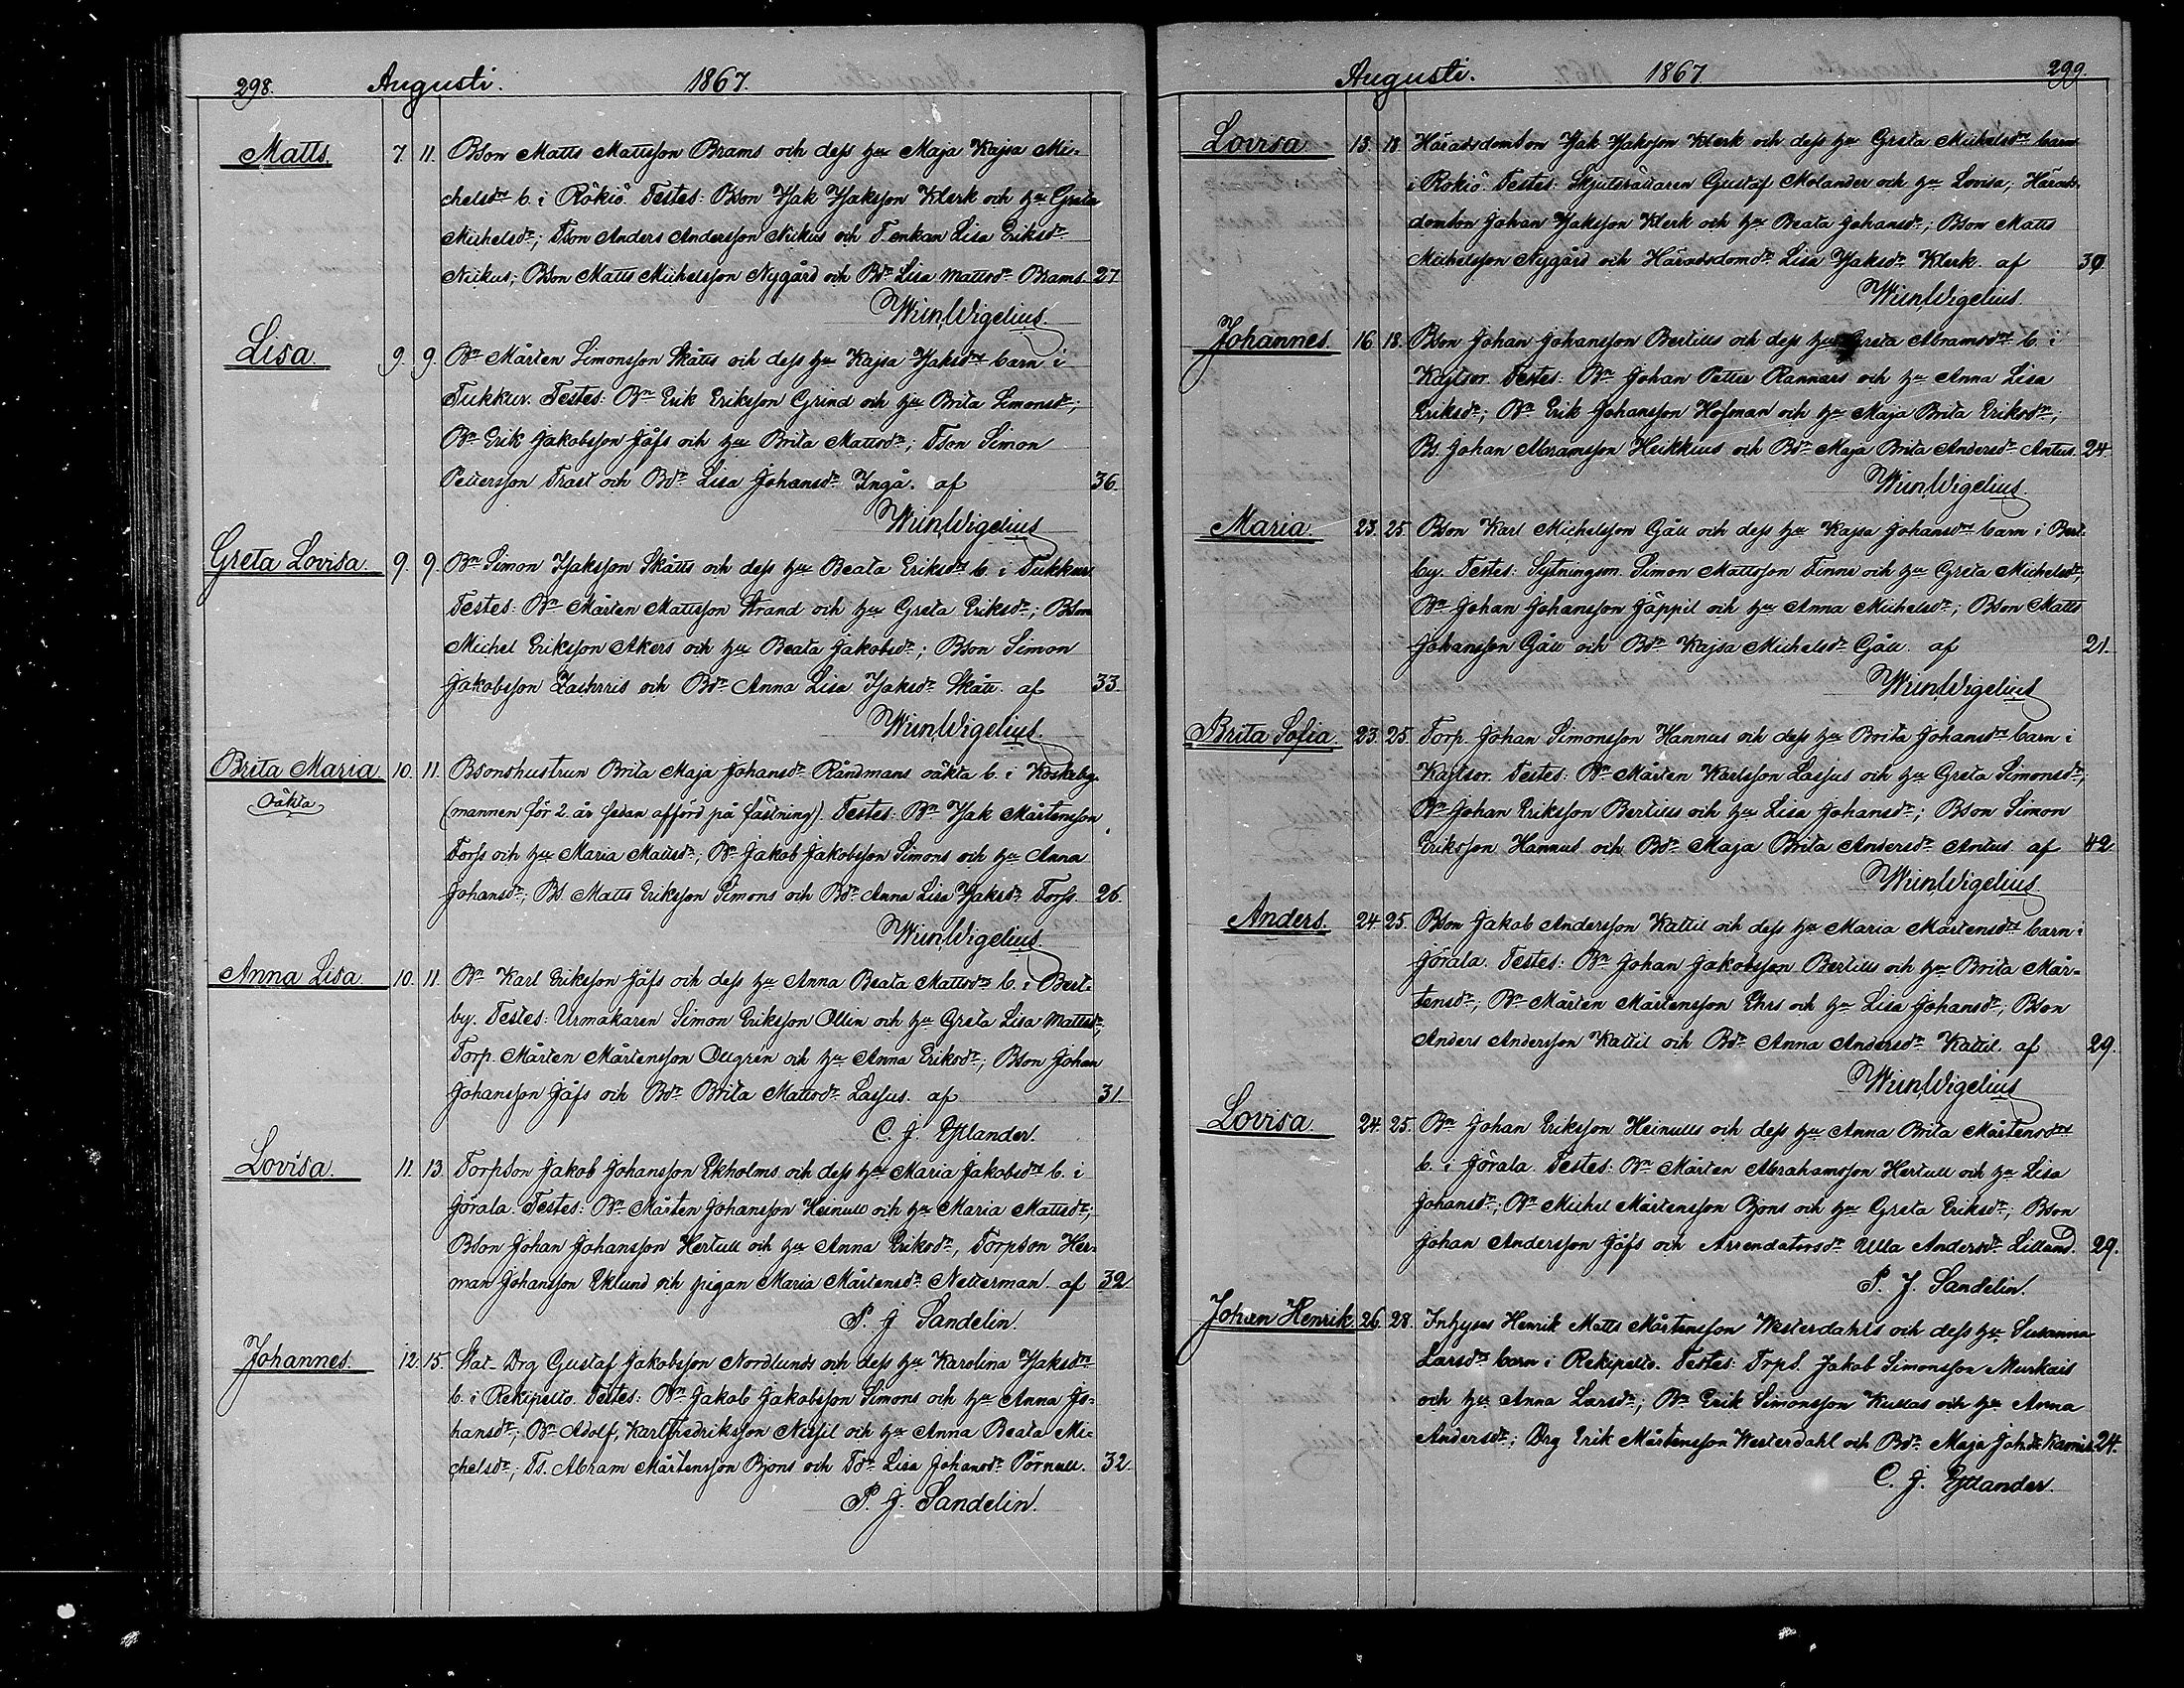 298. Augusti. 1867.
Matts. 7. 11. Bson Matts Mattsson Brams och dess hu Maja Kajsa Mi-
chelsdrs b. i Rökiö. Testes: Bson Isak Isaksson Klerk och hu Greta
Michelsdr; Tson Anders Andersson Nikus och Tenkan Lisa Eriksdr
Nikus; Bson Matts Michelsson Nygård och Bdr Lisa Mattsdr Brams. 27
Wigelius.
Lisa 9. 9. Bn Mårten Simonsson Skåtts och dess hu Kajsa Isaksdrs barn i
Tukkur. Testes: Bn Erik Eriksson Grind och hu Brita Simonsdr;
Bn Erik Jakobsson Jåfs och hu Brita Mattsdr; Tson Simon
Pettersson Trast och Bdr Lisa Johansdr Ingå. af 36.
Wigelius
Greta Lovisa. 9. 9. Bn Simon Isaksson Skåtts och dess hu Beata Eriksdrs b. i Tukkur.
Testes: Bn Mårten Mattsson Strand och hu Greta Eriksdr; Bson
Michel Eriksson Akers och hu Beata Jakobsdr; Bson Simon
Jakobsson Zachrris och Bdr Anna Lisa Isaksdr Skått. af 33.
Wigelius.
Brita Maria 10. 11. Bsonshustrun Brita Maja Johansdr Råndmans oäkta b. i Koskeby.
Oäkta (mannen för 2. år sedan afförd på fästning). Testes: Bn Isak Mårtensson
Torss och hu Maria Mattsdr; Bn Jakob Jakobsson Simons och hu Anna
Johansdr; Bs. Matts Eriksson Simons och Bdr Anna Lisa Isaksdr Torss. 26.
Wigelius.
Anna Lisa. 10. 11. Bn Karl Eriksson Jåfs och dess hu Anna Beata Mattsdrs b. i Bert-
by. Testes: Urmakaren Simon Eriksson Ollin och hu Greta Lisa Mattsdr;
Torp. Mårten Mårtensson Ollgrén och hu Anna Eriksdr; Bson Johan
Johansson Jåfs och Bdr Brita Mattsdr Lassus. af 31
C. J. Estlander.
Lovisa. 11. 13. Torpson Jakob Johansson Ekholms och dess hu Maria Jakobsdrs b. i
Jörala. Testes: Bn Mårten Johansson Heinull och hu Maria Mattsdr;
Bson Johan Johansson Hertull och hu Anna Eriksdr, Torpson Her-
man Johansson Eklund och pigan Maria Mårtensdr Netterman. af 32
P. J. Sandelin.
Johannes. 12. 15. Stat-Drg Gustaf Jakobsson Nordlunds och dess hu Karolina Isaksdrs
b. i Rekipelto. Testes: Bn Jakob Jakobsson Simons och hu Anna Jo-
hansdr; Bn Adolf, Karl Fredriksson Nissil och hu Anna Beata Mi-
chelsdr; Ts. Abram Mårtensson Bjons och Tdr Lisa Johansdr Pörnull. 32.
P. J. Sandelin.
Augusti. 1867. 299.
Lovisa 13. 18 Häradsdomson Isak Isaksson Klerk och dess hu Greta Michelsdrs barn
i Rökiö. Testes: Skjutsrättaren Gustaf Molander och hu Lovisa; Härads-
domson Johan Isaksson Klerk och hu Beata Johansdr; Bson Matts
Michelsson Nygård och Häradsdomdr Lisa Isaksdr Klerk. af 30
Wigelius.
Johannes. 16. 18. Bson Johan Johansson Bertills och dess hu Greta Abramsdrs b. i
Kajtsor. Testes: Bn Johan Petter Rannars och hu Anna Lisa
Eriksdr; Bn Erik Johansson Hofman och hu Maja Brita Eriksdr;
Bs. Johan Abramsson Heikkius och Bdr Maja Brita Andersdr Antus. 24
Wigelius.
Maria. 23. 25. Bson Karl Michelsson Gåll och dess hu Kajsa Johansdrs barn i Bert-
by. Testes: Sytningsm. Simon Mattsson Finne och hu Greta Michelsdr;
Bn Johan Johansson Jåppil och hu Anna Michelsdr; Bson Matts
Johansson Gåll och Bdr Kajsa Michelsdr Gåll. af 21
Wigelius
Brita Sofia. 23. 25. Torp. Johan Simonsson Hannus och dess hu Brita Johansdrs barn i
Kajtsor. Testes: Bn Mårten Karlsson Lassus och hu Greta Simonsdr;
Bn Johan Eriksson Bertills och hu Lisa Johansdr; Bson Simon
Eriksson Hannus och Bdr Maja Brita Andersdr Antus af 42
Wigelius
Anders. 24. 25. Bson Jakob Andersson Kattil och dess hu Maria Mårtensdrs barn i
Jörala. Testes: Bn Johan Jakobsson Bertills och hu Brita Mår-
tensdr; Bn Mårten Mårtensson Ehrs och hu Lisa Johansdr; Bson
Anders Andersson Kattil och Bdr Anna Andersdr Kattil. af 29.
Wigelius
Lovisa. 24. 25. Bn Johan Eriksson Heinulls och dess hu Anna Brita Mårtensdrs
b. i Jörala. Testes: Bn Mårten Abrahamsson Hertull och hu Lisa
Johansdr; Bn Michel Mårtensson Bjons och hu Greta Eriksdr; Bson
Johan Andersson Jåfs och Arrendatorsdr Ulla Andersdr Lillund. 29.
P. J. Sandelin.
Johan Henrik. 26. 28. Inhyses Henrik Matts Mårtensson Westerdahls och dess hu Susanna
Larsdrs barn i Rekipelto. Testes: Torps. Jakob Simonsson Murkais
och hu Anna Larsdr; Bn Erik Simonsson Kullas och hu Anna
Andersdr; Drg Erik Mårtensson Westerdahl och Bdr Maja Joh.dr 24.
C. J. Estlander.